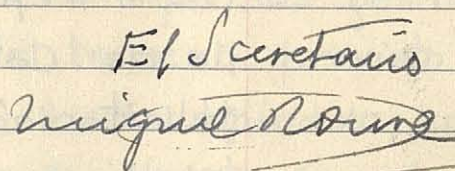 El Secretario
Miguel Roura